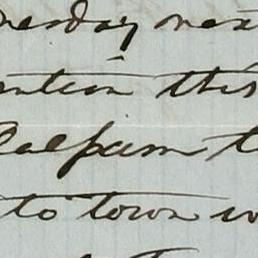 nesday next
ention this
Calpum t
to town w